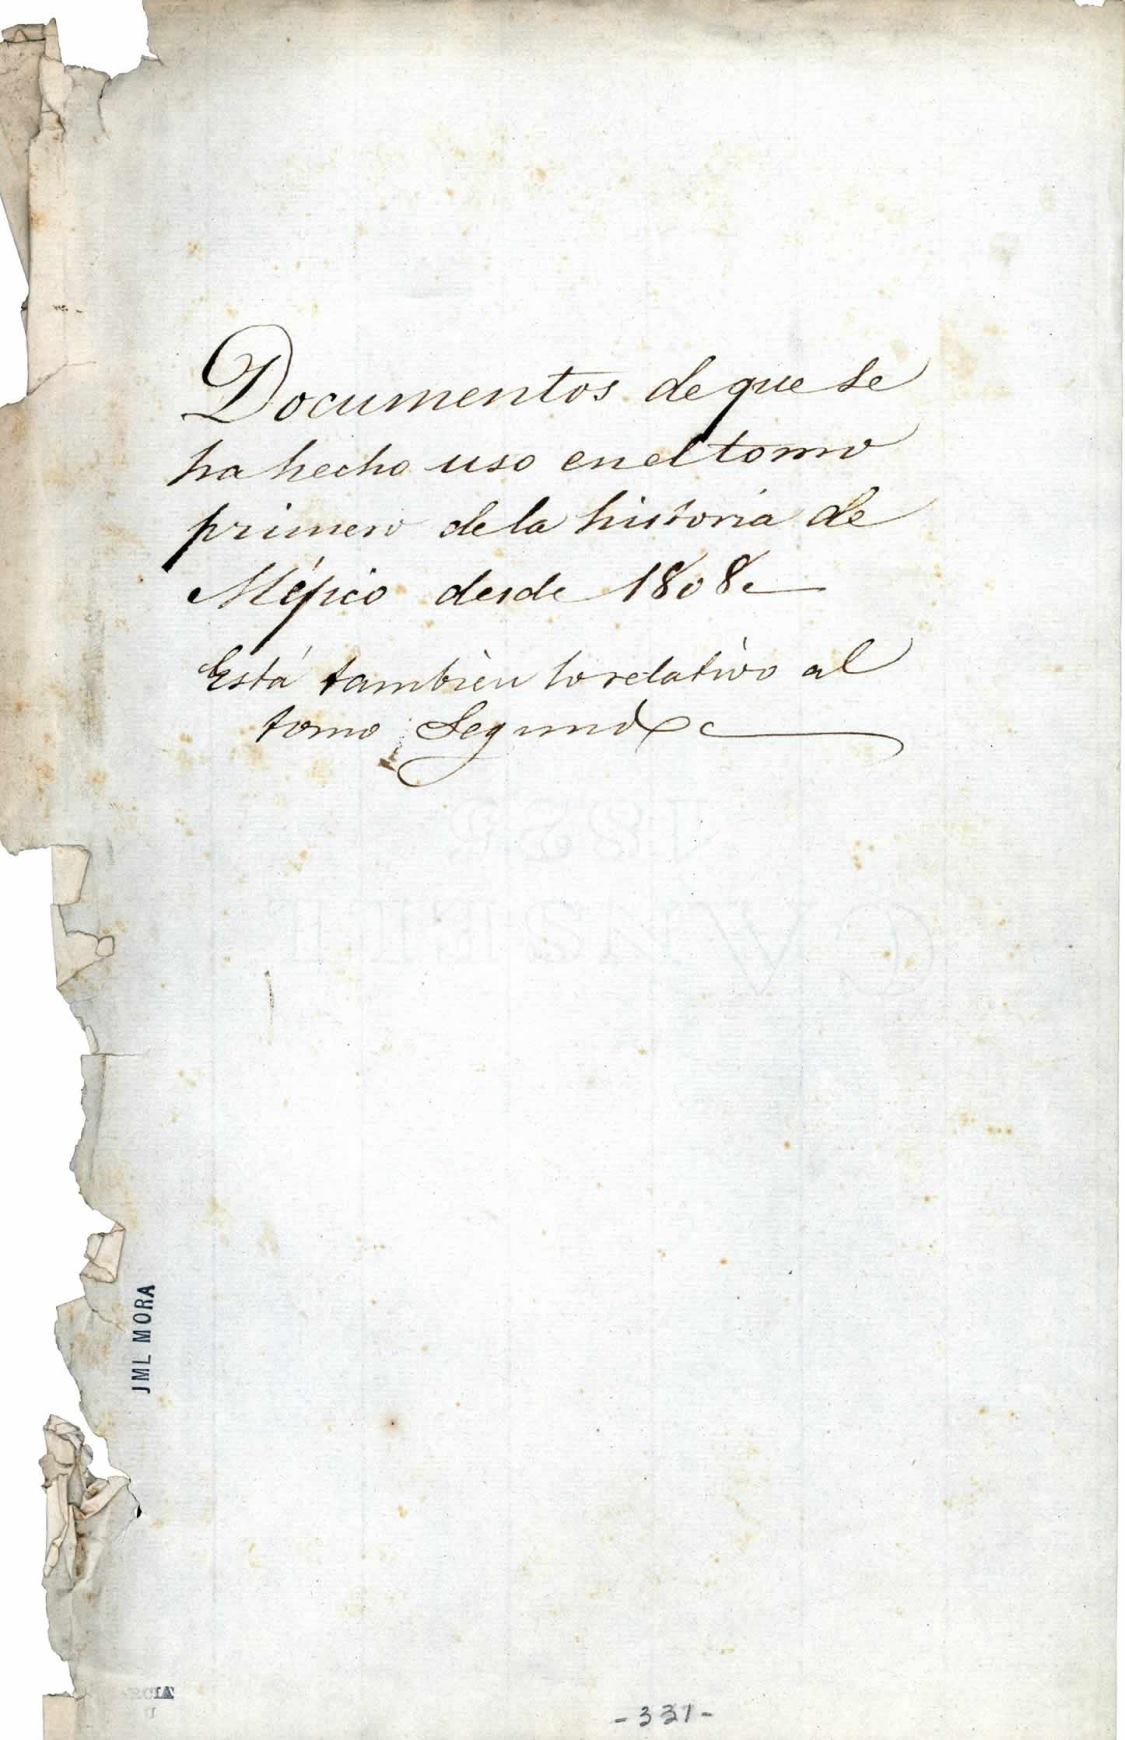 Documentos de que se
ha hecho uso en el tomo
primero de la historia de
Méjico desde 1808.
Está tambien lo relativo al
tomo Segundo
1825
CANSELL
JML MORA
RCIA
-331-